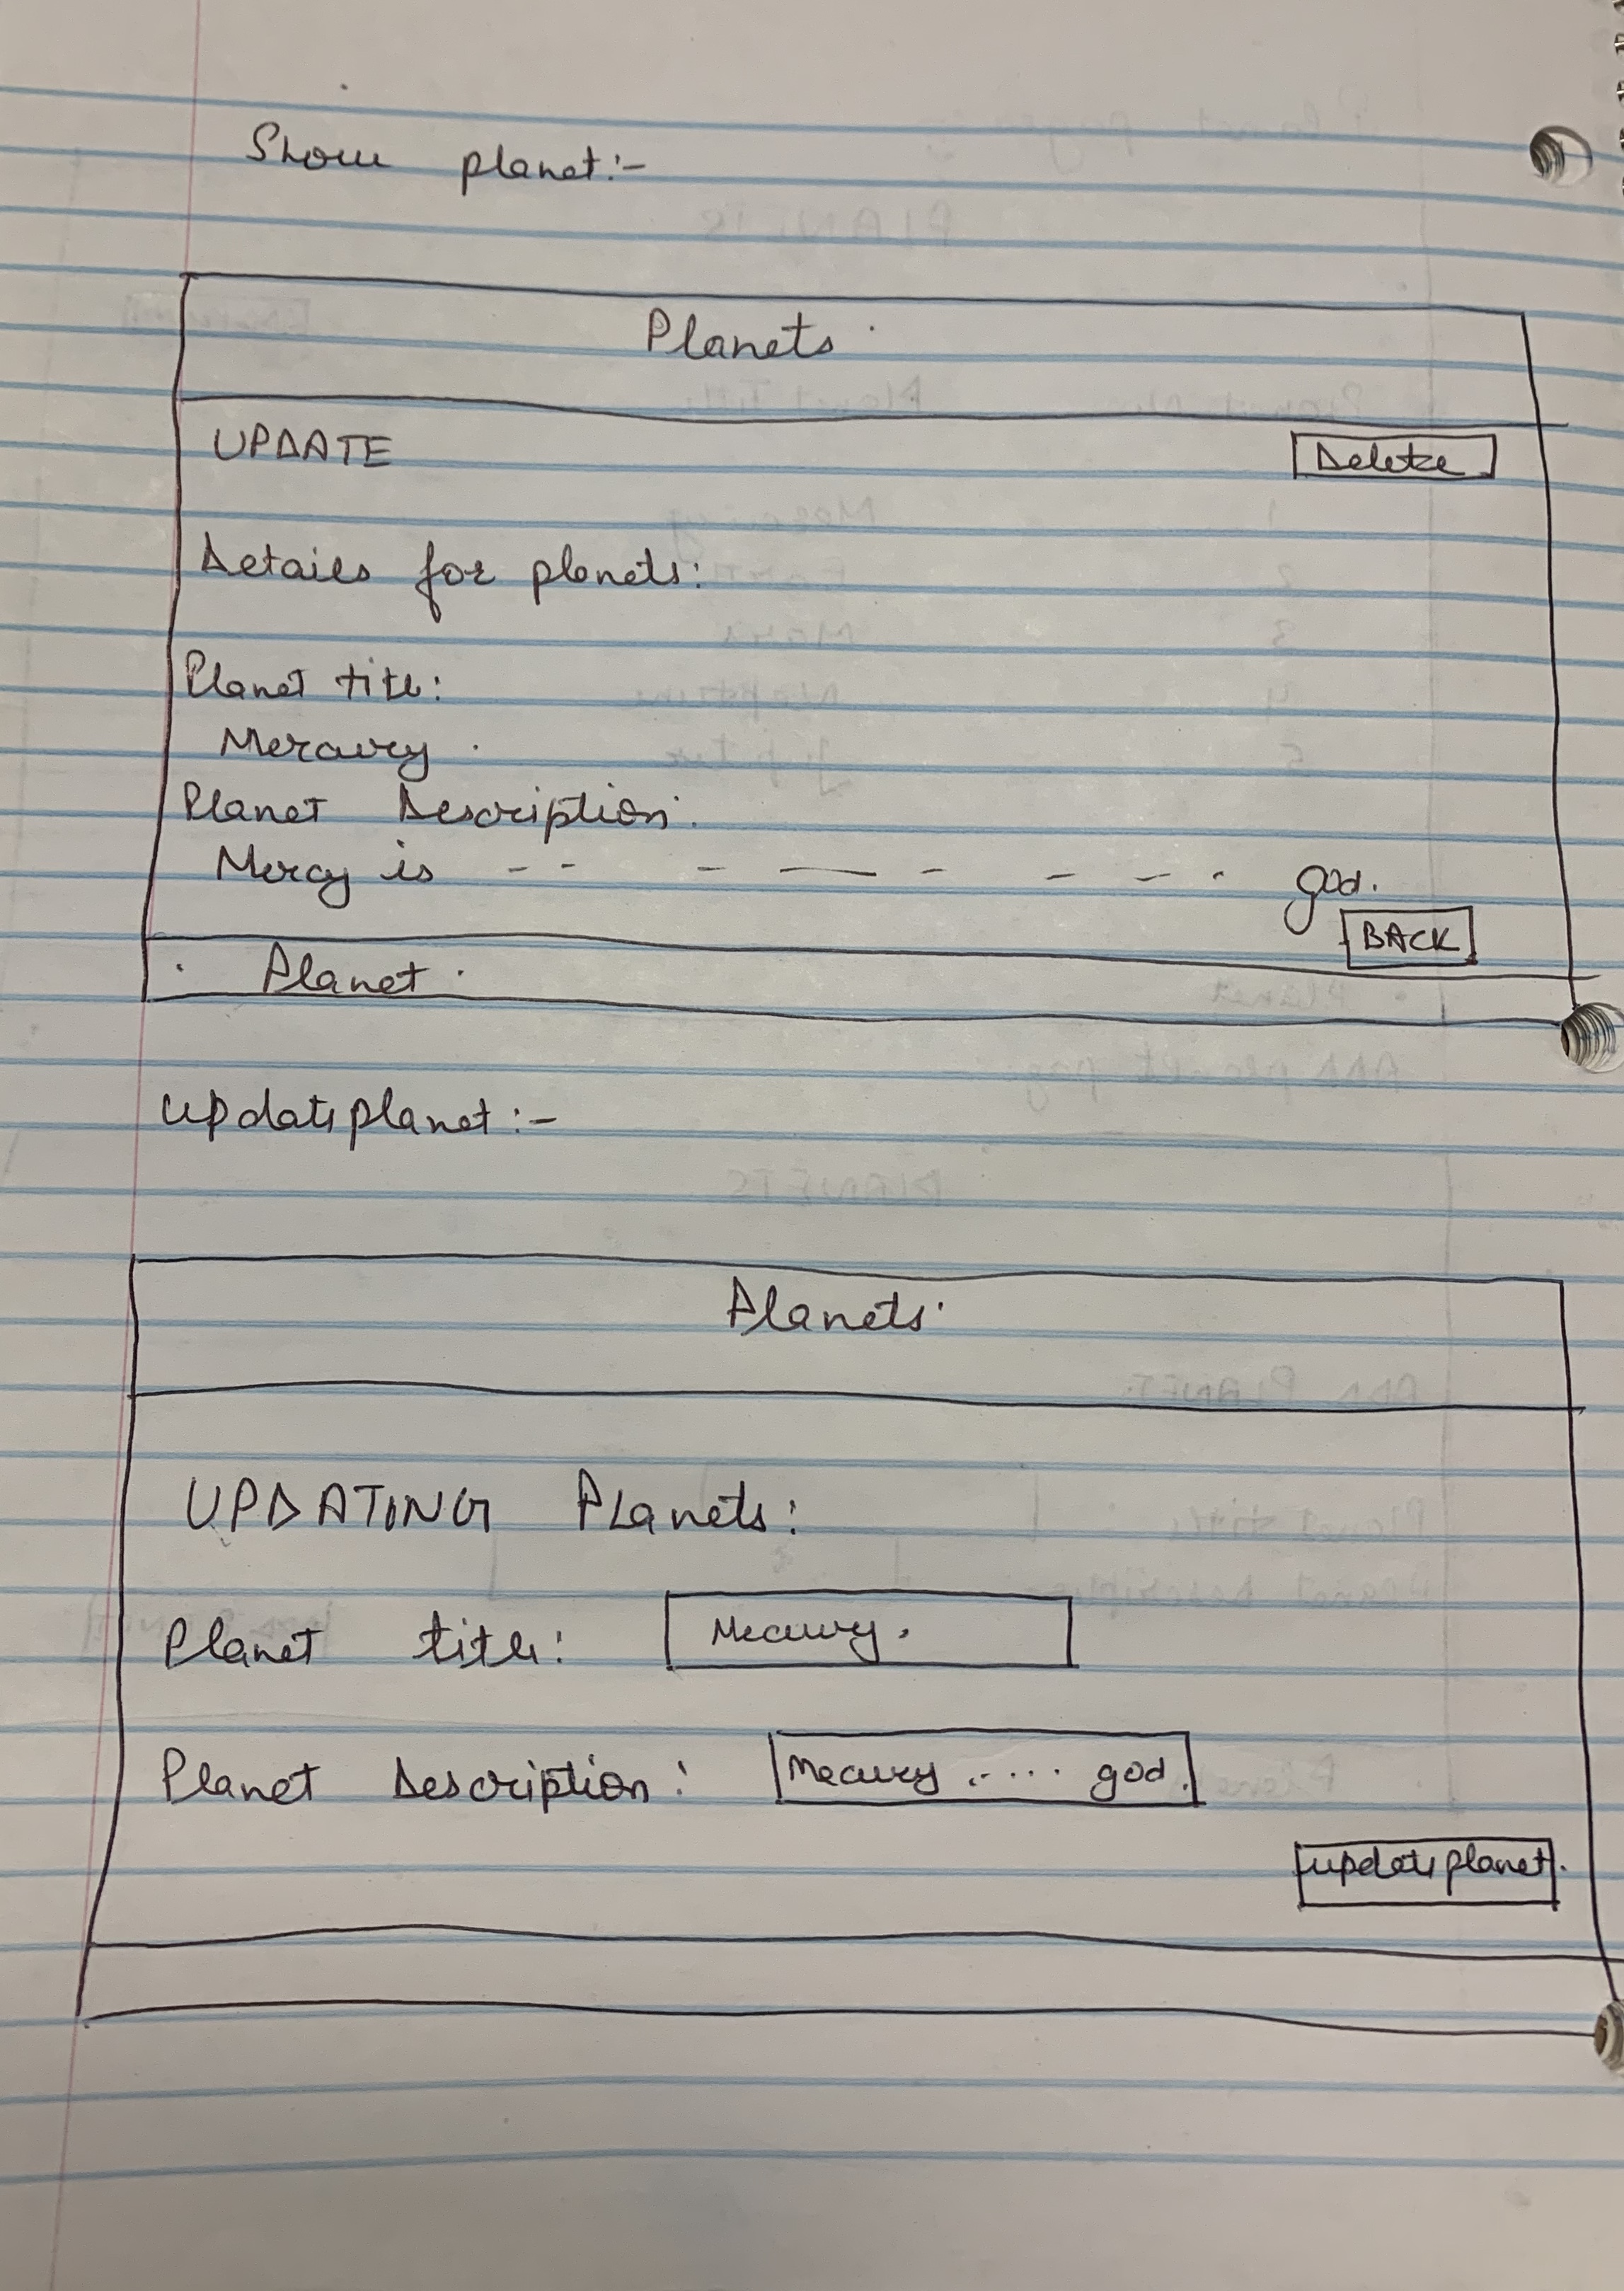 Show planet:-
Planets
UPDATE Delete
Details for planets:
Planet title:
Mercury.
Planet Description:
Mercy is -- - — - - - - . god.
BACK
Planet.
Update planet:-
Planets
UPDATING Planets:
Planet title: Mecury.
Planet Description: Mecury ..... god.
update planet.